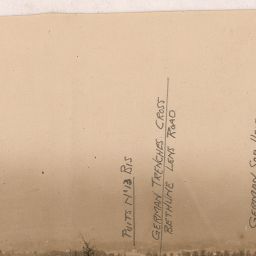 PUITS Nº13 BIS
GERMAN TRENCHES CROSS
BETHUNE LENS ROAD
GERMAN SAP